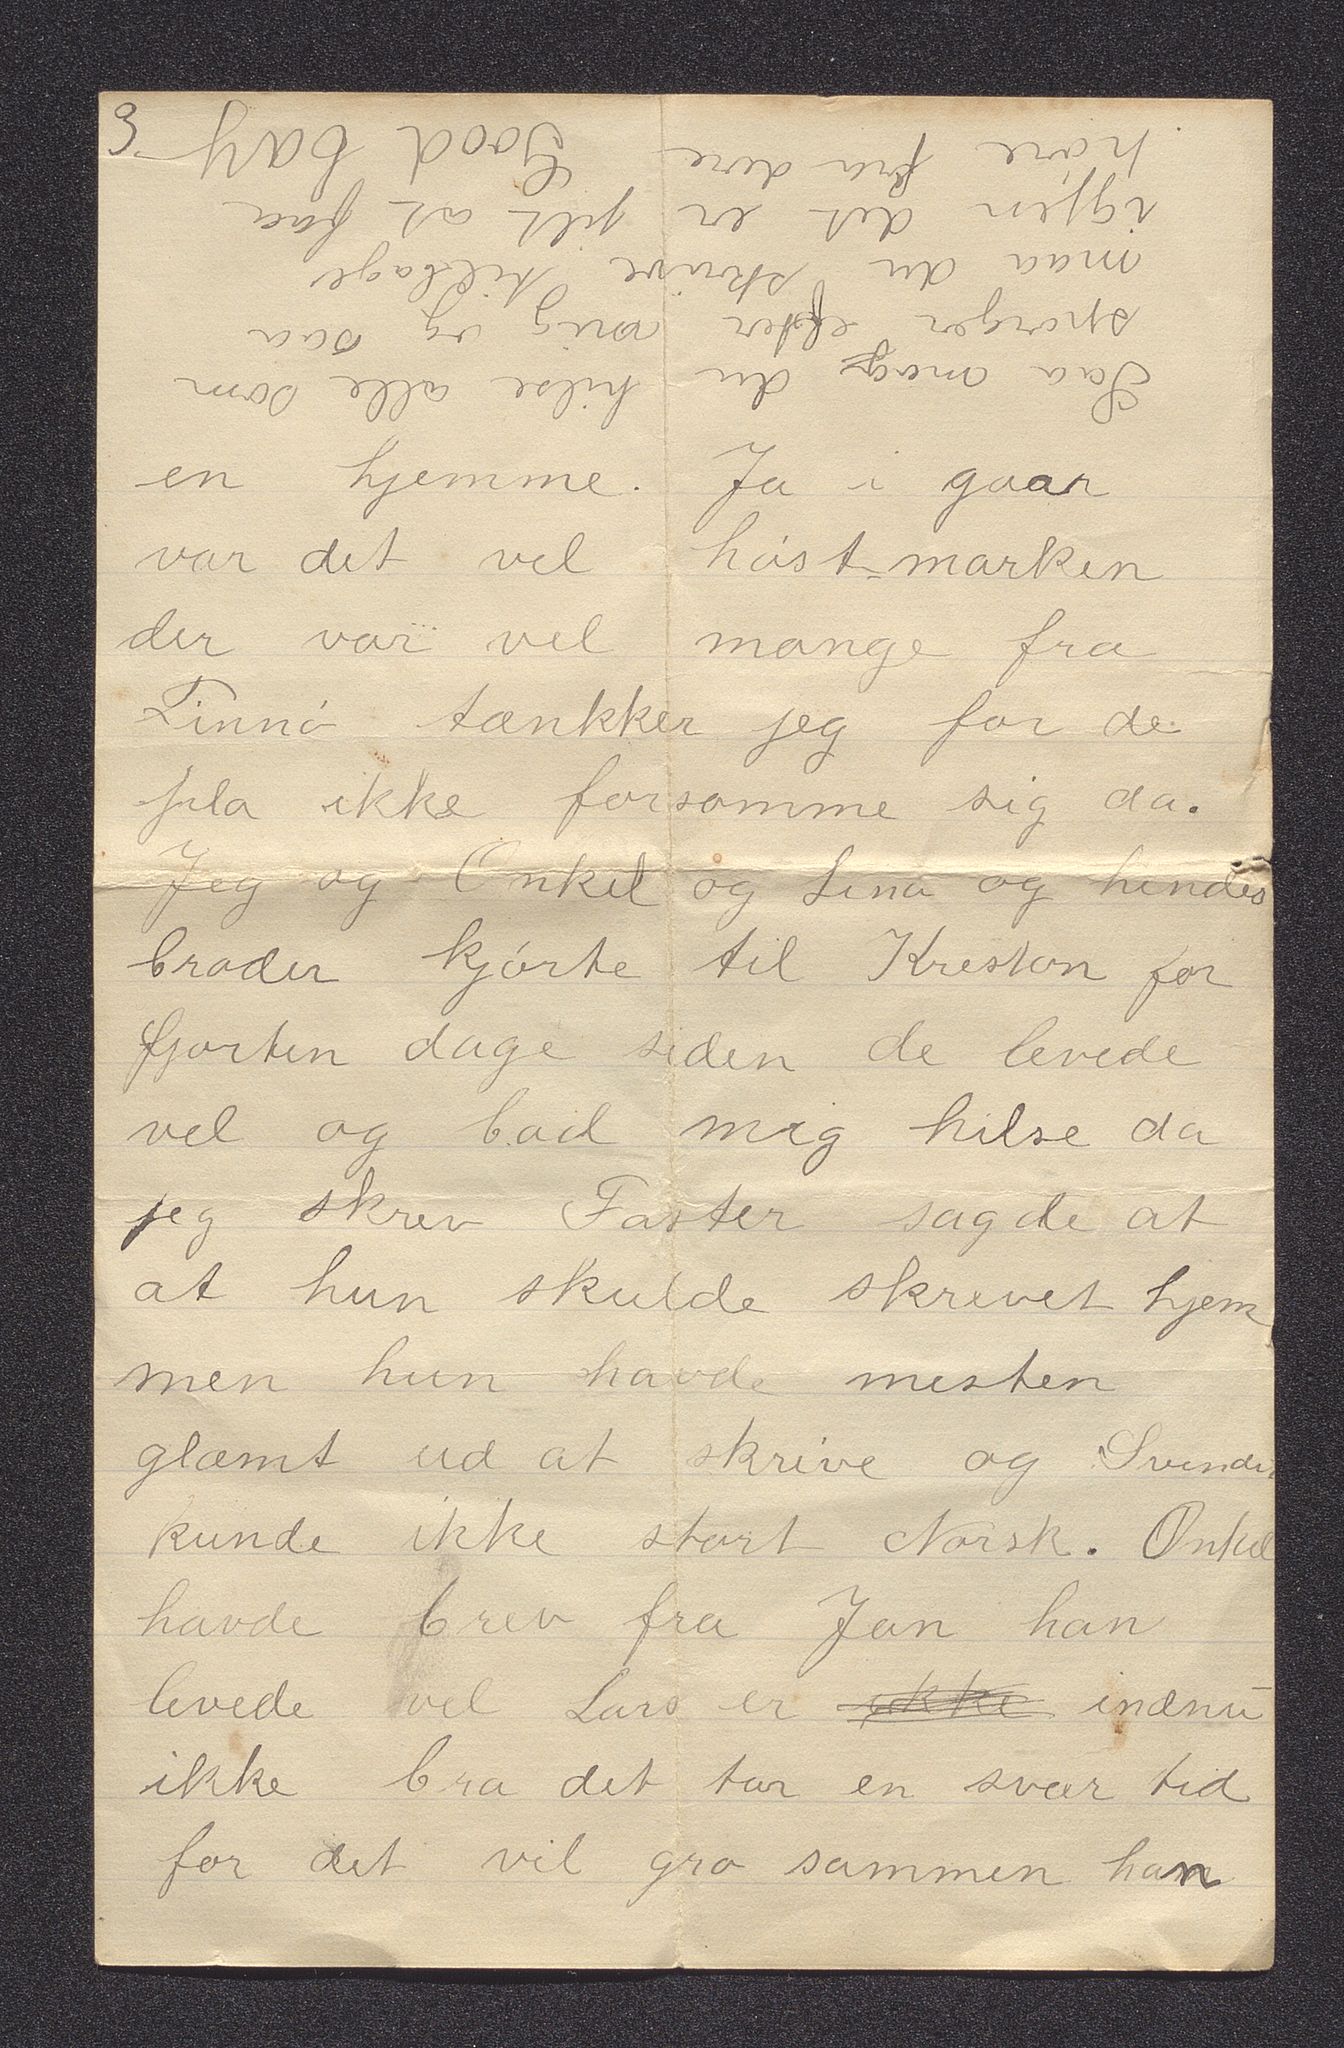 3
en hjemme. Ja i gaar
var det vel høst-marken
der var vel mange fra
Finnø tænkker jeg for de
pla ikke forsomme sig da.
Jeg og Onkel og Lina og hendes
broder kjørte til Kreston for
fjorten dage siden de levede
vel og bad mig hilse da
jeg skrev Faster sagde at
at hun skulde skrevet hjem
men hun havde mesten
glæmt ud at skrive og Svendr
kunde ikke stort Norsk. Onkel
havde brev fra Jan han
levede vel Lars er ikke indnu
ikke bra det tar en svær tid
for det vil gro sammen han
Saa maa du hilse alle som
spørger efter mig og saa
maa du skrive tilbage
igjen det er jilt at faa
høre fra dere Good bay